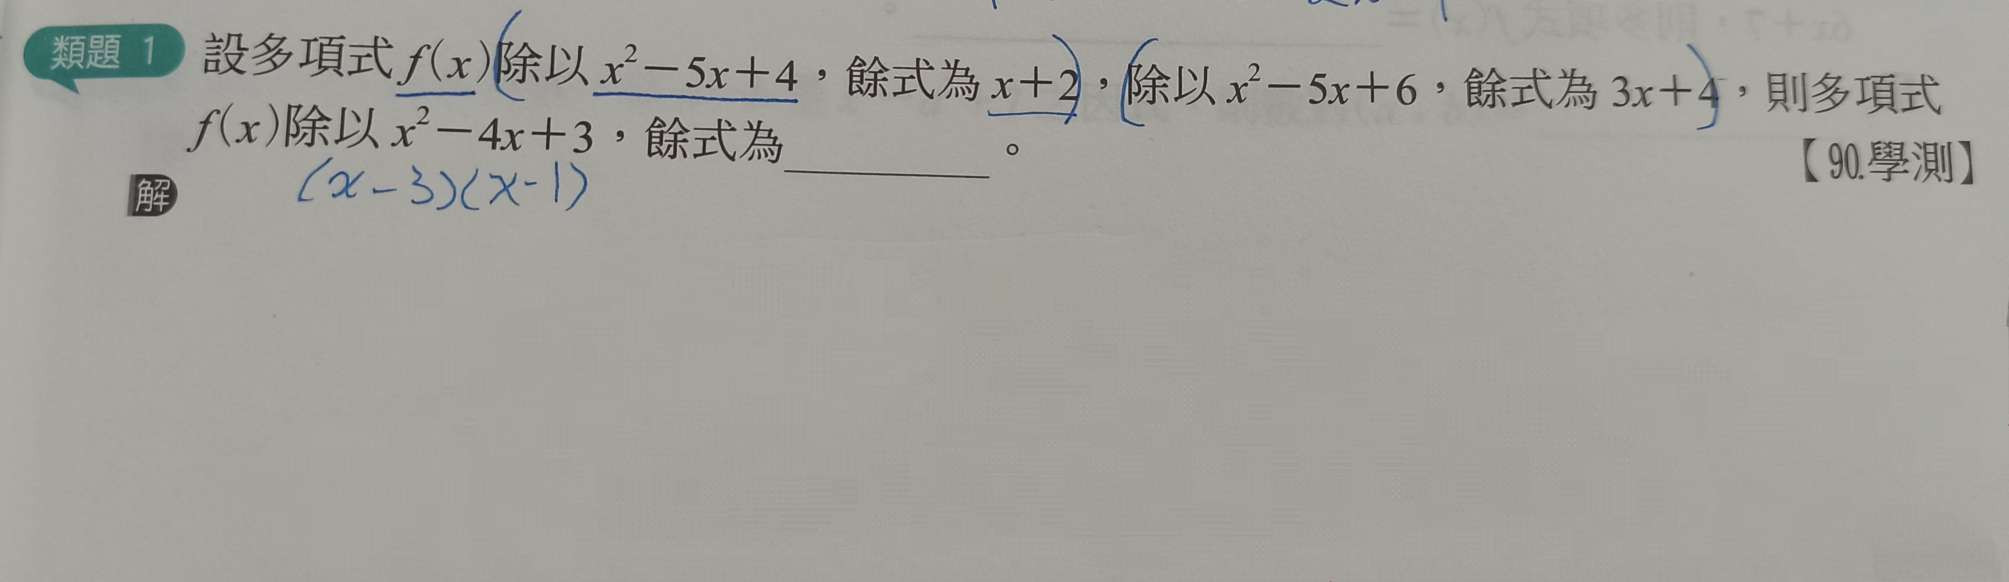 類題 1 設多項式 f(x)(除以 x²−5x+4,餘式為 x+2),(除以 x²−5x+6,餘式為 3x+4),則多項式
f(x)除以 x²−4x+3,餘式為________。
【90.學測】
解 (x-3)(x-1)